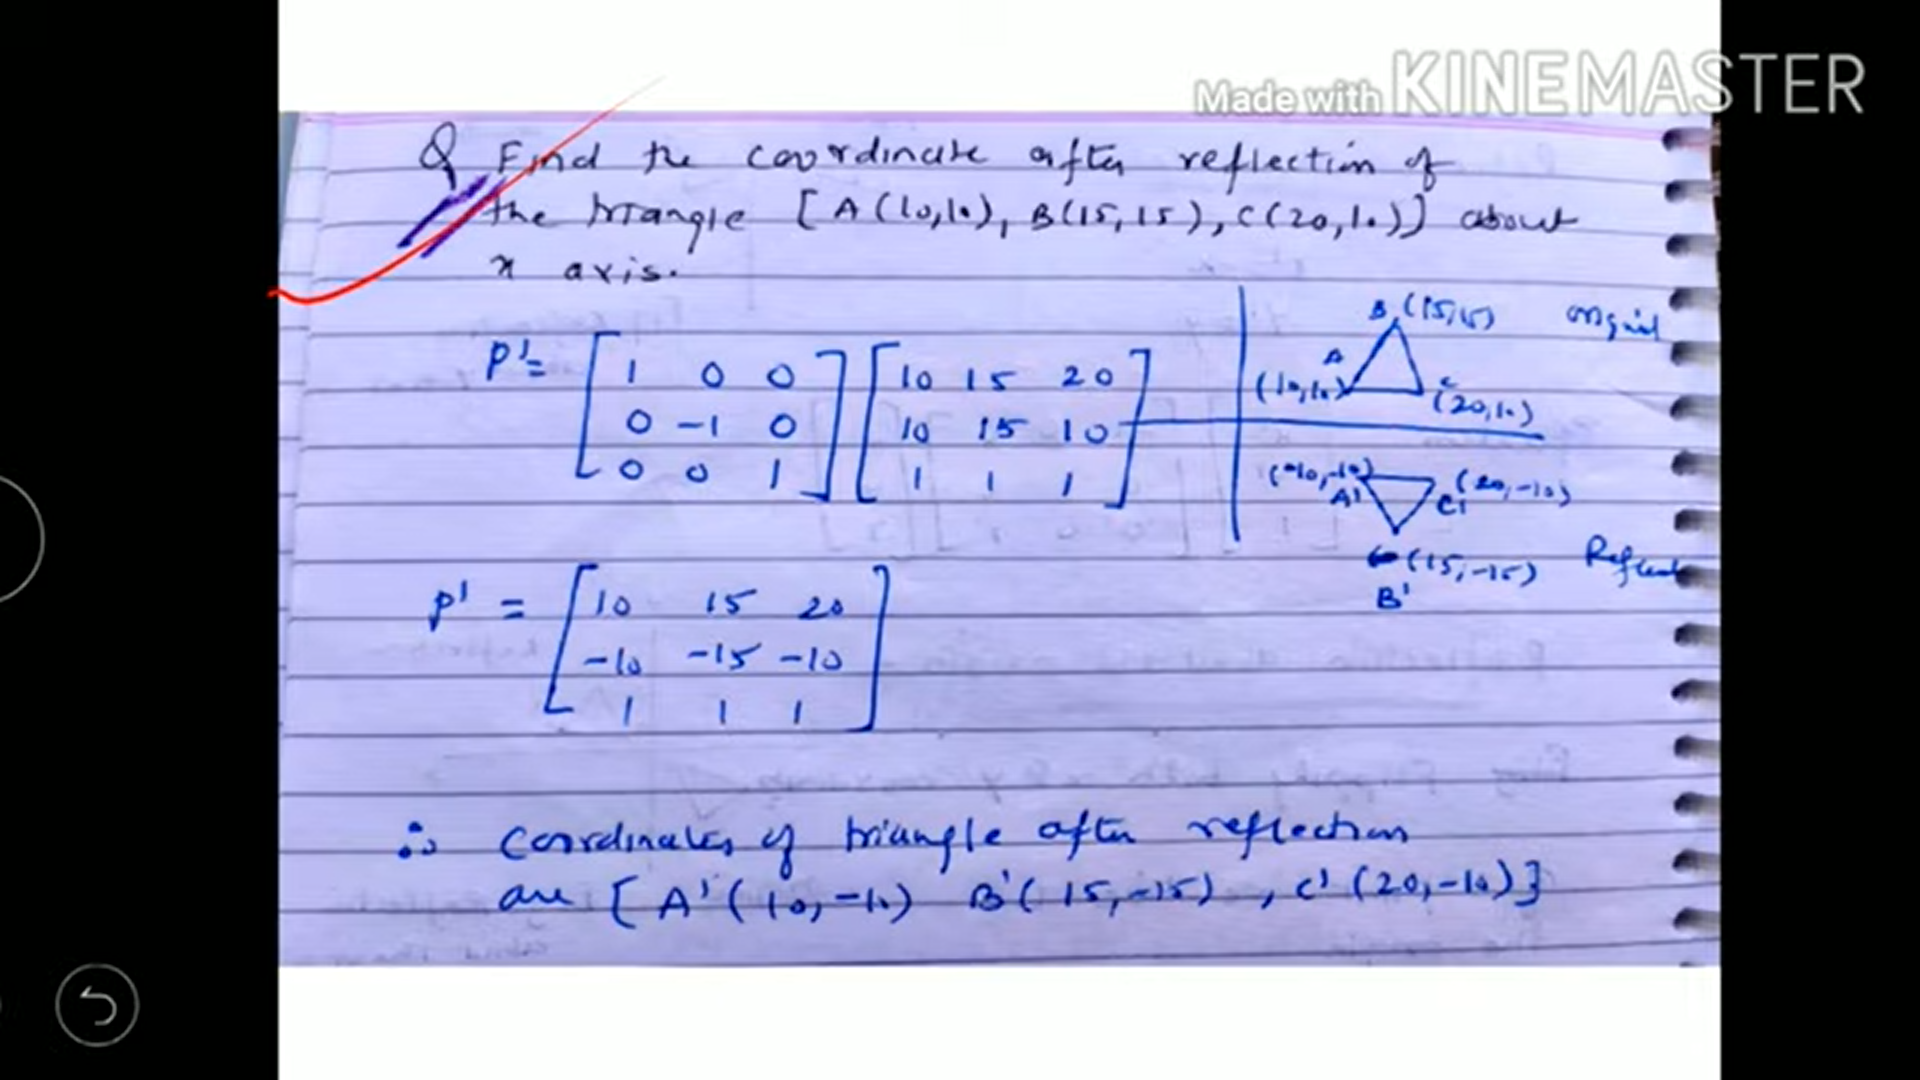 Made with KINEMASTER
Q Find the coordinate after reflection of
the triangle [A(10,10), B(15,15), C(20,10)] about
x axis.
P' = [1 0 0] [10 15 20]
0 -1 0 10 15 10
0 0 1 1 1 1
B (15,15) original
A
(10,10) C (20,10)
(10,-10) (20,-10)
A' C'
(15,-15) Reflect
B'
P' = [10 15 20]
-10 -15 -10
1 1 1
∴ Coordinates of triangle after reflection
are [A'(10,-10) B'(15,-15), C'(20,-10)]